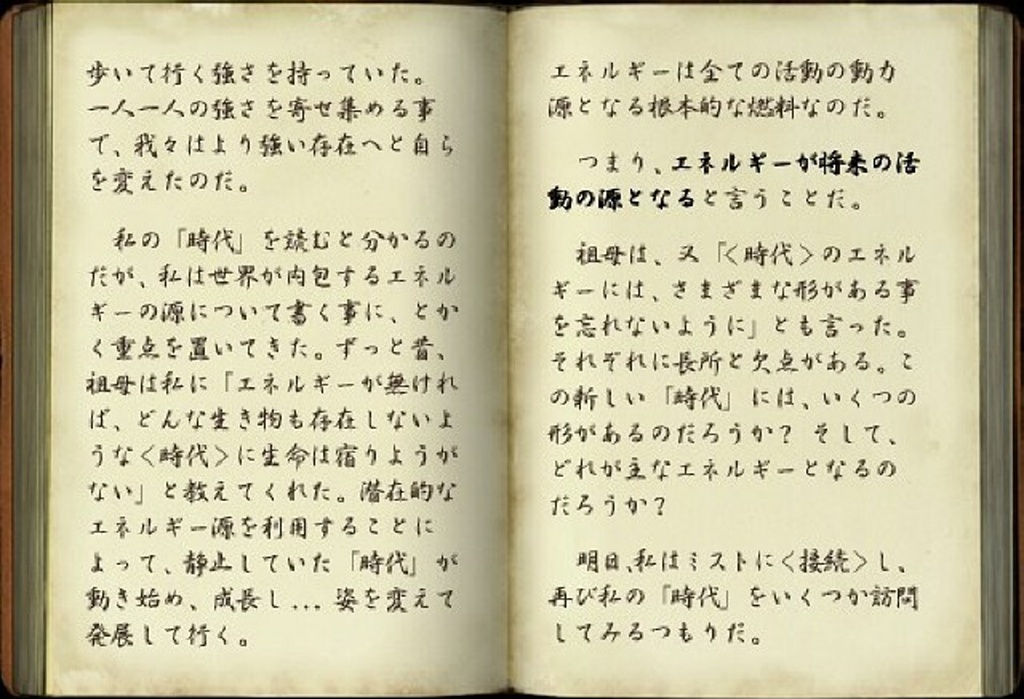 歩いて行く強さを持っていた。
一人一人の強さを寄せ集める事
で、我々はより強い存在へと自ら
を変えたのだ。
私の「時代」を読むと分かるの
だが、私は世界が内包するエネル
ギーの源について書く事に、とか
く重点を置いてきた。ずっと昔、
祖母は私に「エネルギーが無けれ
ば、どんな生き物も存在しないよ
うな＜時代＞に生命は宿りようが
ない」と教えてくれた。潜在的な
エネルギー源を利用することに
よって、静止していた「時代」が
動き始め、成長し...姿を変えて
発展して行く。
エネルギーは全ての活動の動力
源となる根本的な燃料なのだ。
つまり、エネルギーが将来の活
動の源となると言うことだ。
祖母は、又「＜時代＞のエネル
ギーには、さまざまな形がある事
を忘れないように」とも言った。
それぞれに長所と欠点がある。こ
の新しい「時代」には、いくつの
形があるのだろうか？ そして、
どれが主なエネルギーとなるの
だろうか？
明日、私はミストに＜接続＞し、
再び私の「時代」をいくつか訪問
してみるつもりだ。